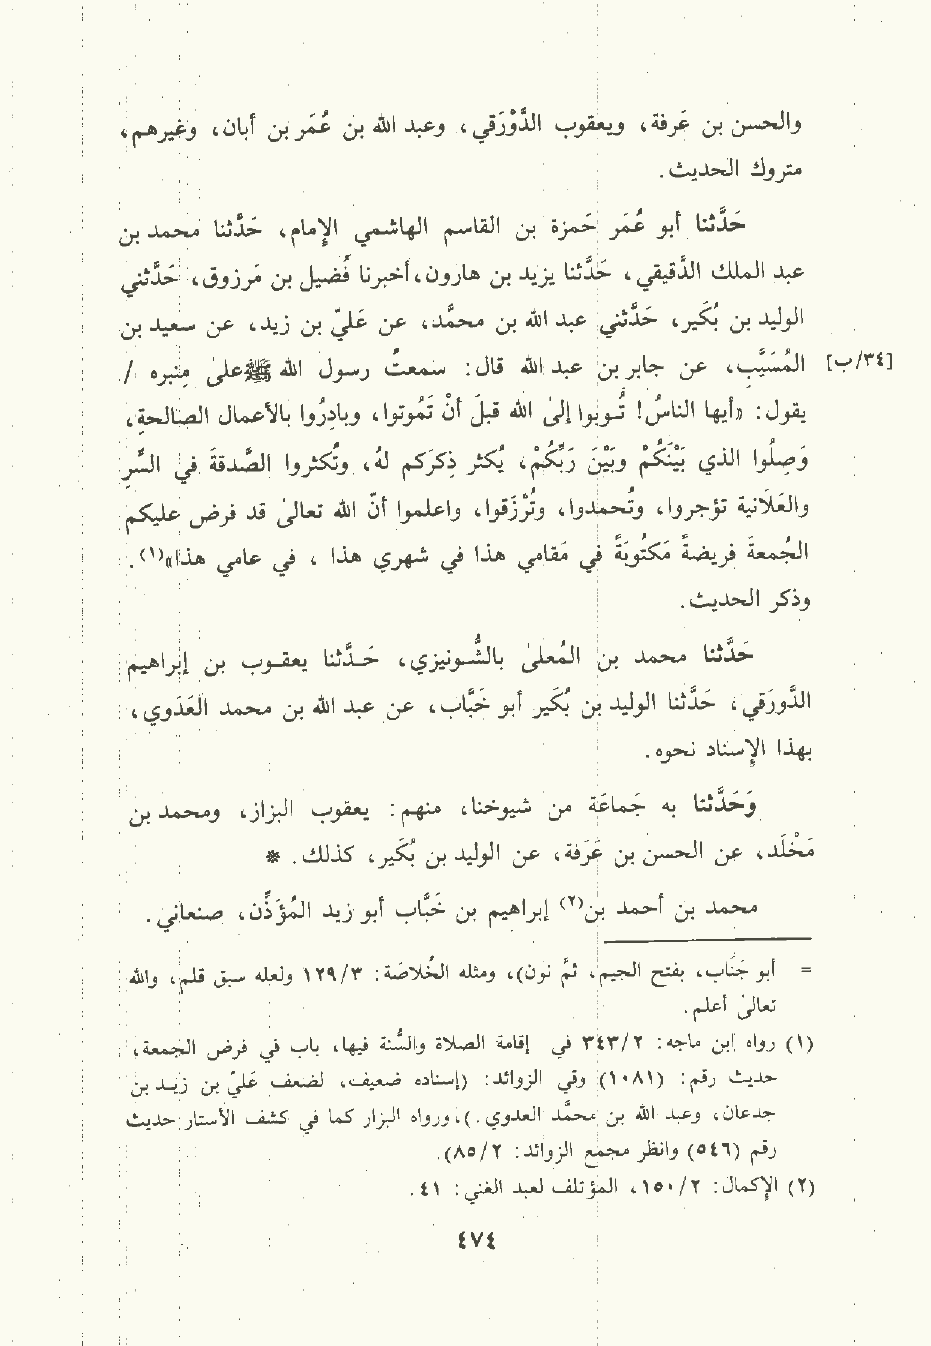 والحسن بن عَرفة، ويعقوب الدَّوْرَقي، وعبد الله بن عُمَر بن أبان، وغيرهم،
متروك الحديث.
حَدَّثنا أبو عُمَر حَمزة بن القاسم الهاشمي الإمام، حَدَّثنا محمد بن
عبد الملك الدَّقيقي، حَدَّثنا يزيد بن هارون، أخبرنا فُضيل بن مَرزوق، حَدَّثني
الوليد بن بُكَير، حَدَّثني عبد الله بن محمَّد، عن عَليّ بن زيد، عن سعيد بن
[٣٤/ب] المُسَيَّب، عن جابر بن عبد الله قال: سمعتُ رسول الله ﷺ علىٰ مِنبره /
يقول: «أيها الناسُ! تُوبوا إلىٰ الله قبلَ أنْ تَمُوتوا، وبادِرُوا بالأعمال الصالحةِ،
وَصِلُوا الذي بَيْنَكُمْ وبَيْنَ رَبِّكُمْ، يُكثر ذِكرَكم لهُ، وتُكثروا الصَّدقةَ في السِّر
والعَلَانيةِ تؤجروا، وتُحمدوا، وتُرْزَقوا، واعلموا أنَّ الله تعالىٰ قد فرض عليكم
الجُمعةَ فريضةً مَكتُوبَةً في مَقامي هذا في شهري هذا ، في عامي هذا»(١).
وذكر الحديث.
حَدَّثنا محمد بن المُعلىٰ بالشُّونيزي، حَدَّثنا يعقوب بن إبراهيم
الدَّورَقي، حَدَّثنا الوليد بن بُكَير أبو خَبَّاب، عن عبد الله بن محمد العَدَوي،
بهذا الإسناد نحوه.
وَحَدَّثنا به جَماعَة من شيوخنا، منهم: يعقوب البزاز، ومحمد بن
مَخْلَد، عن الحسن بن عَرَفة، عن الوليد بن بُكَير، كذلك. *
محمد بن أحمد بن(٢) إبراهيم بن خَبَّاب أبو زيد المُؤَذِّن، صنعاني.
= أبو جَنَاب، بفتح الجيم، ثمَّ نون)، ومثله الخُلاصَة: ١٢٩/٣ ولعله سبق قلم، والله
تعالىٰ أعلم.
(١) رواه إبن ماجه: ٣٤٣/٢ في إقامة الصلاة والسُّنة فيها، باب في فرض الجمعة،
حديث رقم: (١٠٨١) وفي الزوائد: (إسناده ضعيف، لضعف عَليّ بن زيد بن
جدعان، وعبد الله بن محمَّد العدوي.). ورواه البزار كما في كشف الأستار حديث
رقم (٥٤٦) وانظر مجمع الزوائد: ٨٥/٢).
(٢) الإكمال: ١٥٠/٢، المؤتلف لعبد الغني: ٤١.
٤٧٤